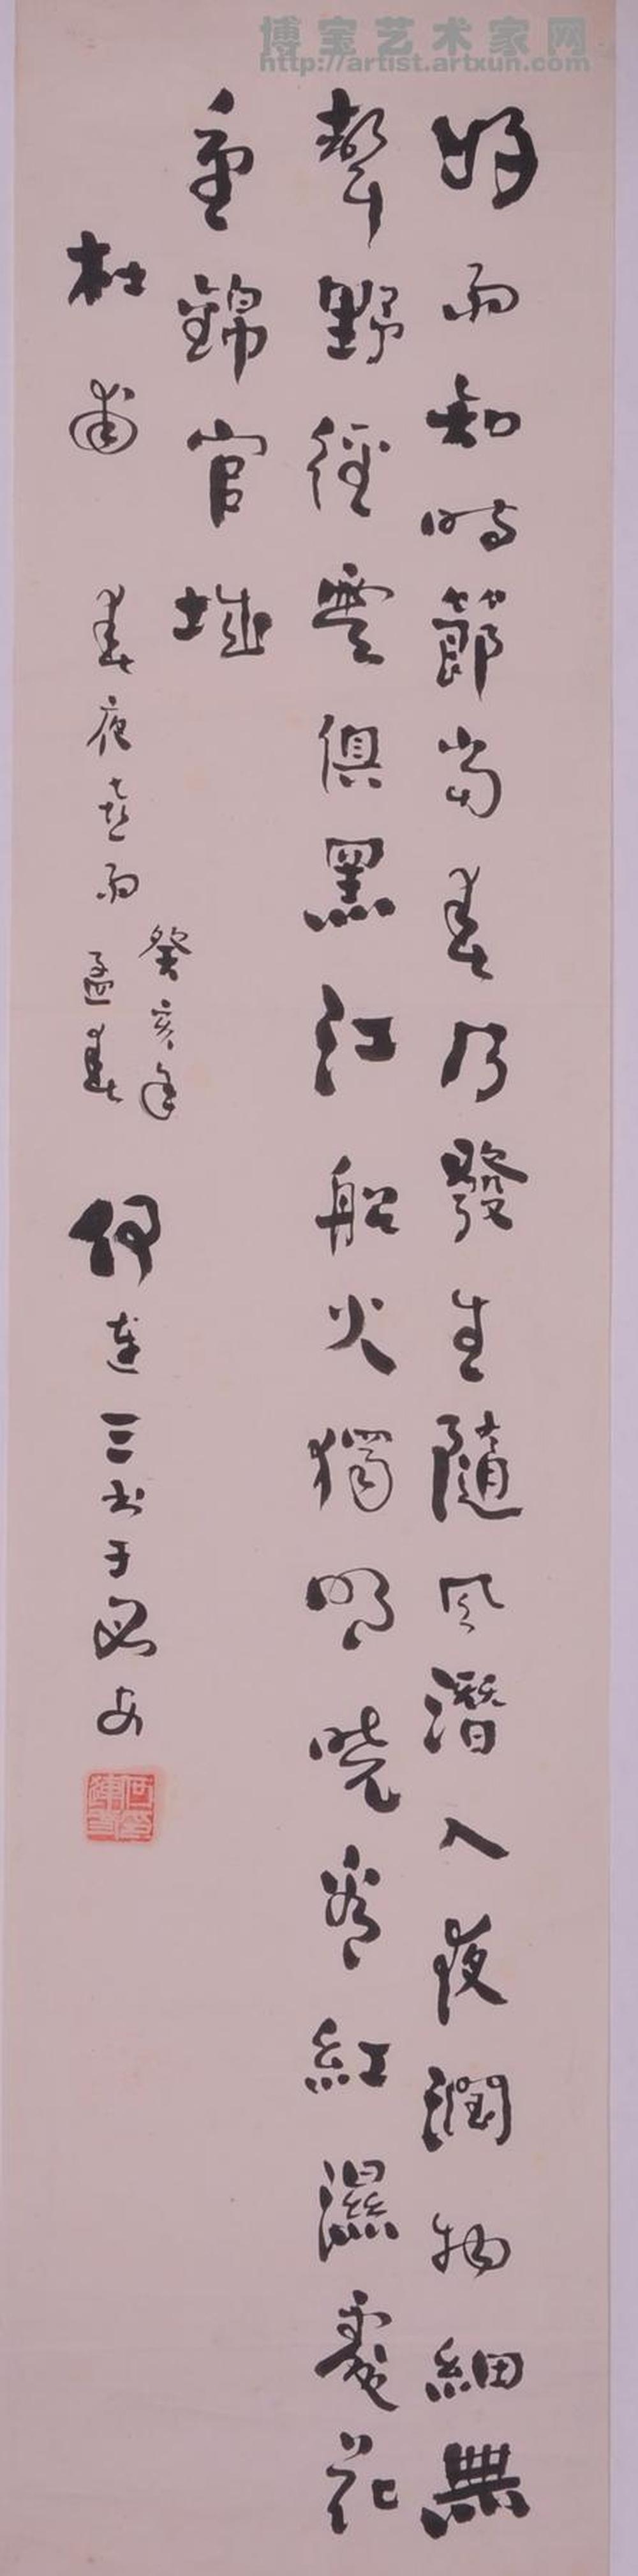 博宝艺术家网
http://artist.artxun.com
好雨知時節當春乃發生隨風潛入夜潤物細無
聲野徑雲俱黑江船火獨明曉看紅濕處花
重錦官城
杜甫 春夜喜雨
癸亥年
孟春
何連三书于安